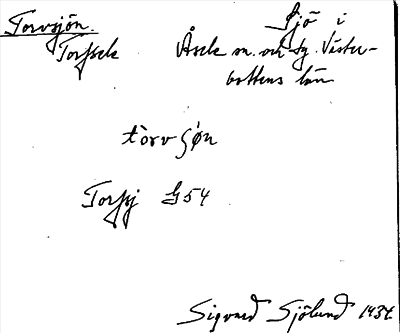 Torvsjön. Sjö i
Torpsele Åsele sn. och tg. Väster-
bottens län
tòrvʃø̀n
Torpsj G54
Sigvard Sjölund 1934.